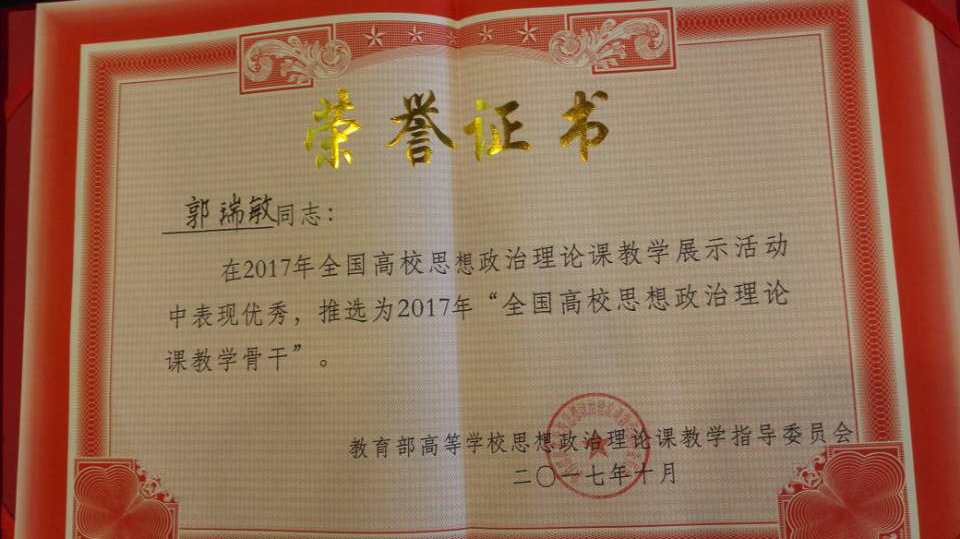 荣誉证书
郭瑞敏同志：
在2017年全国高校思想政治理论课教学展示活动
中表现优秀，推选为2017年“全国高校思想政治理论
课教学骨干”。
教育部高等学校思想政治理论课教学指导委员会
二〇一七年十月